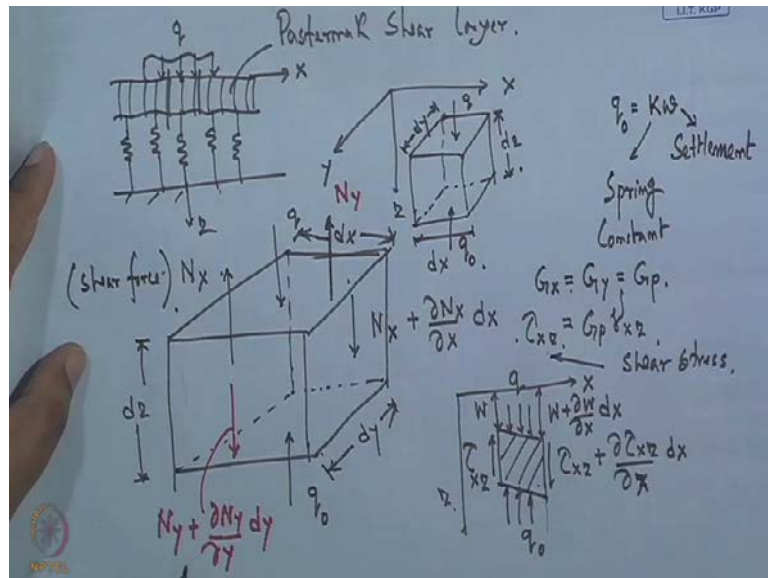 I.I.T. KGP
q
Pasternak Shear layer.
X
Z
X
q
dy
dz
Y
Z
q₀.
dx
q₀ = Kw
Settlement
Spring
Constant
Gx = Gy = Gp.
τxz = Gp γxz
Shear stress.
Ny
q
dx
(Shear force) Nx
Nx + ∂Nx/∂x dx
dz
dy
q₀
Ny + ∂Ny/∂y dy
q
X
W
W + ∂W/∂x dx
τxz
τxz + ∂τxz/∂x dx
Z
q₀
NPTEL